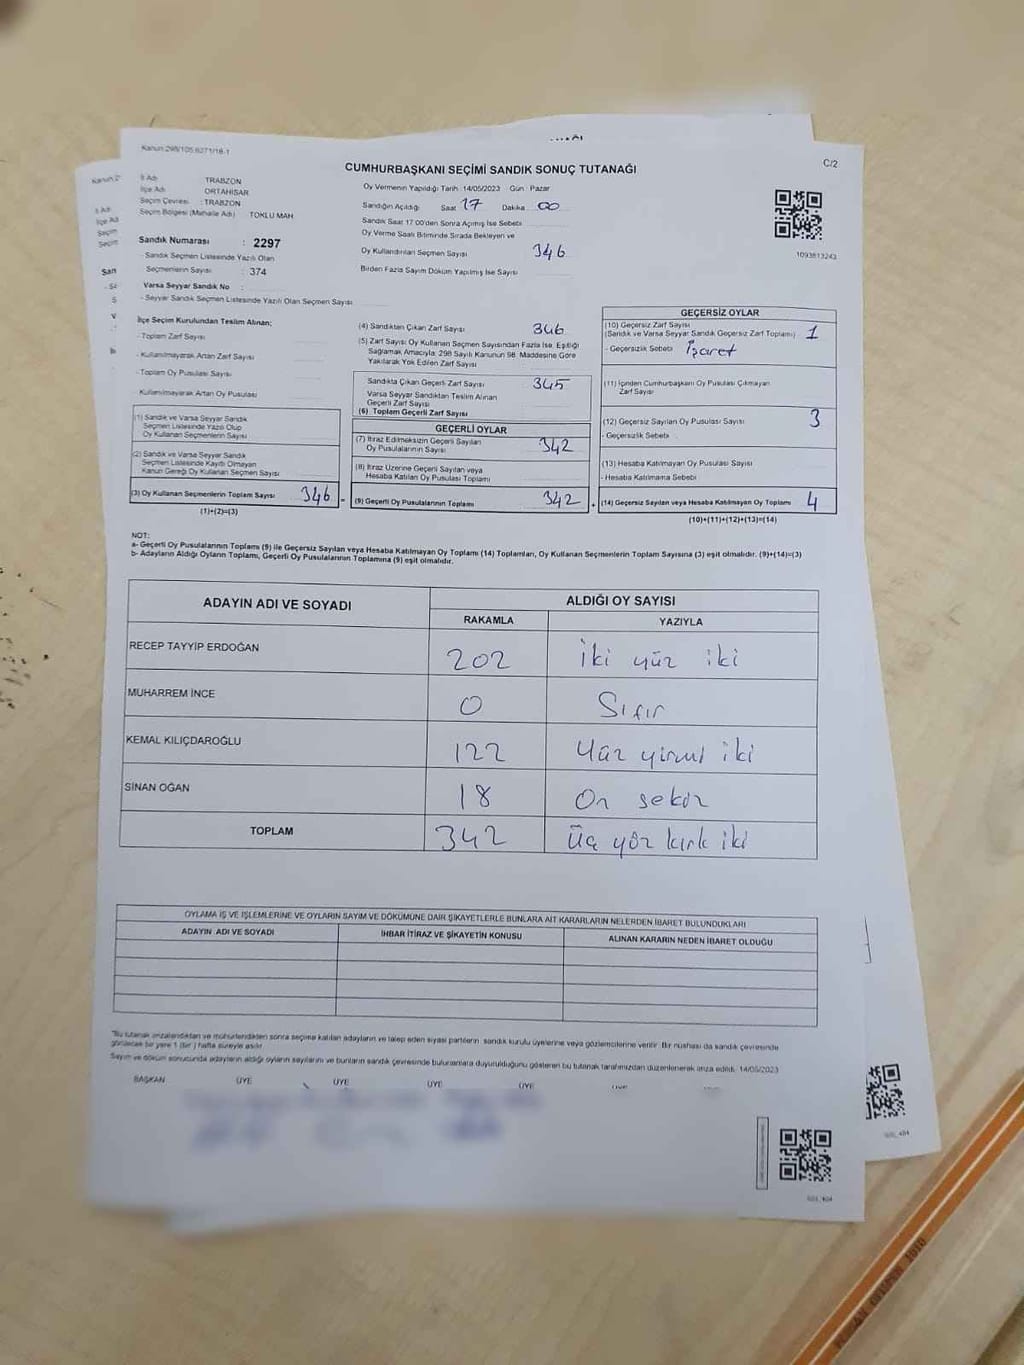 Kanun:298/105 6271/18-1
C/2
CUMHURBAŞKANI SEÇİMİ SANDIK SONUÇ TUTANAĞI
İl Adı TRABZON
İlçe Adı ORTAHİSAR
Seçim Çevresi : TRABZON
Seçim Bölgesi (Mahalle Adı) TOKLU MAH
Sandık Numarası : 2297
Sandık Seçmen Listesinde Yazılı Olan
Seçmenlerin Sayısı : 374
Varsa Seyyar Sandık No :
- Seyyar Sandık Seçmen Listesinde Yazılı Olan Seçmen Sayısı
Oy Vermenin Yapıldığı Tarih: 14/05/2023 Gün : Pazar
Sandığın Açıldığı Saat 17 Dakika 00
Sandık Saat 17:00'den Sonra Açılmış İse Sebebi
Oy Verme Saati Bitiminde Sırada Bekleyen ve
Oy Kullandırılan Seçmen Sayısı 346
Birden Fazla Sayım Döküm Yapılmış İse Sayısı
1093813243
İlçe Seçim Kurulundan Teslim Alınan;
- Toplam Zarf Sayısı
- Kullanılmayarak Artan Zarf Sayısı
- Toplam Oy Pusulası Sayısı
- Kullanılmayarak Artan Oy Pusulası
(1) Sandık ve Varsa Seyyar Sandık
Seçmen Listesinde Yazılı Olup
Oy Kullanan Seçmenlerin Sayısı
(2) Sandık ve Varsa Seyyar Sandık
Seçmen Listesinde Kayıtlı Olmayan
Kanun Gereği Oy Kullanan Seçmen Sayısı
(3) Oy Kullanan Seçmenlerin Toplam Sayısı 346
(1)+(2)=(3)
(4) Sandıktan Çıkan Zarf Sayısı 346
(5) Zarf Sayısı Oy Kullanan Seçmen Sayısından Fazla İse, Eşitliği
Sağlamak Amacıyla; 298 Sayılı Kanunun 98. Maddesine Göre
Yakılarak Yok Edilen Zarf Sayısı
Sandıkta Çıkan Geçerli Zarf Sayısı 345
Varsa Seyyar Sandıktan Teslim Alınan
Geçerli Zarf Sayısı
(6) Toplam Geçerli Zarf Sayısı
GEÇERLİ OYLAR
(7) İtiraz Edilmeksizin Geçerli Sayılan
Oy Pusulalarının Sayısı 342
(8) İtiraz Üzerine Geçerli Sayılan veya
Hesaba Katılan Oy Pusulası Toplamı
(9) Geçerli Oy Pusulalarının Toplamı 342
GEÇERSİZ OYLAR
(10) Geçersiz Zarf Sayısı
(Sandık ve Varsa Seyyar Sandık Geçersiz Zarf Toplamı) 1
- Geçersizlik Sebebi İşaret
(11) İçinden Cumhurbaşkanı Oy Pusulası Çıkmayan
Zarf Sayısı
(12) Geçersiz Sayılan Oy Pusulası Sayısı 3
- Geçersizlik Sebebi
(13) Hesaba Katılmayan Oy Pusulası Sayısı
- Hesaba Katılmama Sebebi
(14) Geçersiz Sayılan veya Hesaba Katılmayan Oy Toplamı 4
(10)+(11)+(12)+(13)=(14)
NOT:
a- Geçerli Oy Pusulalarının Toplamı (9) ile Geçersiz Sayılan veya Hesaba Katılmayan Oy Toplamı (14) Toplamları, Oy Kullanan Seçmenlerin Toplam Sayısına (3) eşit olmalıdır. (9)+(14)=(3)
b- Adayların Aldığı Oyların Toplamı, Geçerli Oy Pusulalarının Toplamına (9) eşit olmalıdır.
ADAYIN ADI VE SOYADI ALDIĞI OY SAYISI
RAKAMLA YAZIYLA
RECEP TAYYİP ERDOĞAN 202 iki yüz iki
MUHARREM İNCE 0 Sıfır
KEMAL KILIÇDAROĞLU 122 Yüz yirmi iki
SİNAN OĞAN 18 On sekiz
TOPLAM 342 Üç yüz kırk iki
OYLAMA İŞ VE İŞLEMLERİNE VE OYLARIN SAYIM VE DÖKÜMÜNE DAİR ŞİKAYETLERLE BUNLARA AİT KARARLARIN NELERDEN İBARET BULUNDUKLARI
ADAYIN ADI VE SOYADI İHBAR İTİRAZ VE ŞİKAYETİN KONUSU ALINAN KARARIN NEDEN İBARET OLDUĞU
"Bu tutanak imzalandıktan ve mühürlendikten sonra seçime katılan adayların ve talep eden siyasi partilerin sandık kurulu üyelerine veya gözlemcilerine verilir. Bir nüshası da sandık çevresinde
görülecek bir yere 1 (bir ) hafta süreyle asılır.
Sayım ve döküm sonucunda adayların aldığı oyların sayılarını ve bunların sandık çevresinde bulunanlara duyurulduğunu gösteren bu tutanak tarafımızdan düzenlenerek imza edildi. 14/05/2023
BAŞKAN ÜYE ÜYE ÜYE ÜYE